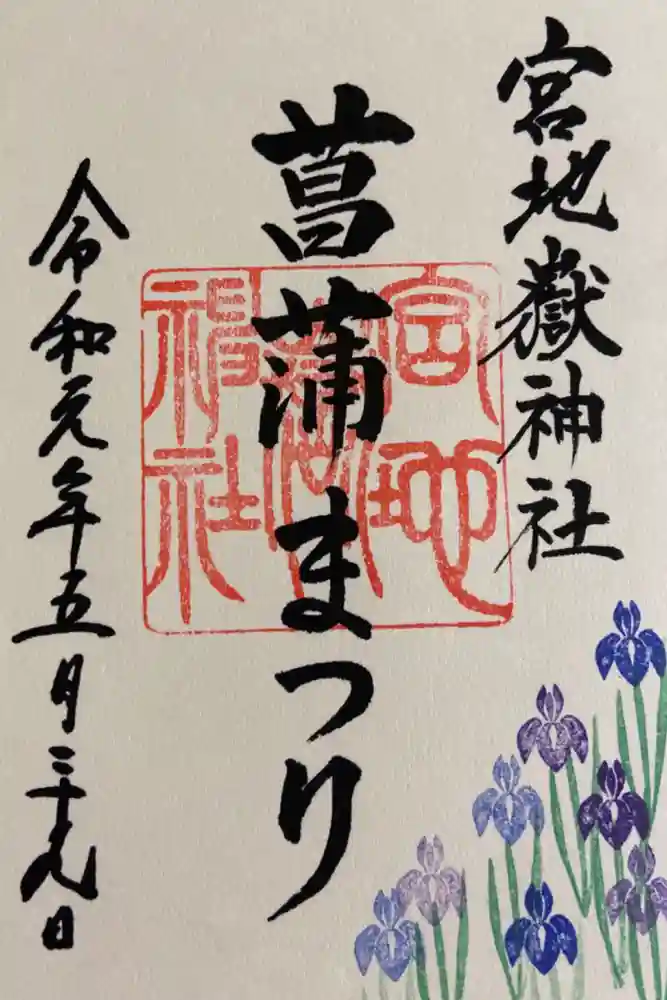 宮地嶽神社
菖蒲まつり
宮地嶽神社
令和元年五月二十九日